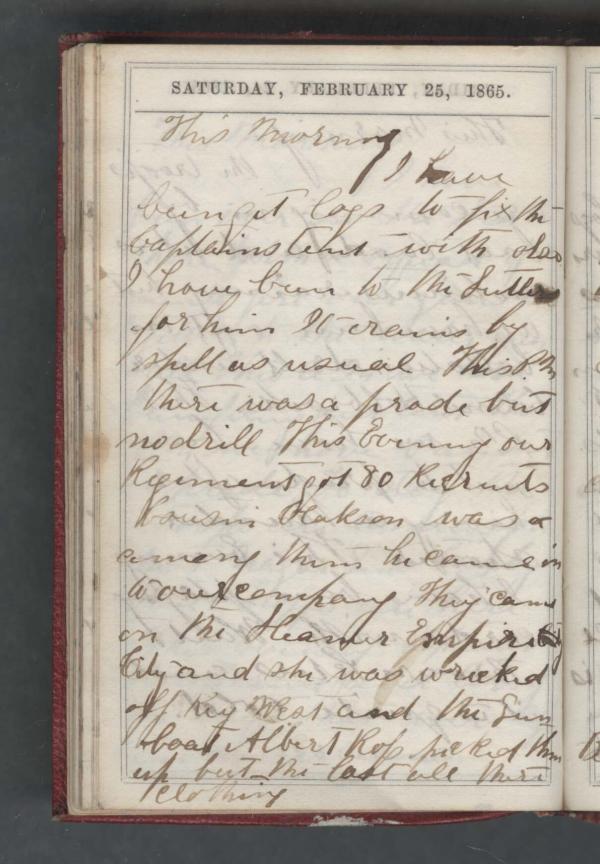 SATURDAY, FEBRUARY 25, 1865.
This Morning
I have
been get logs to fix the
Captains tent with also
I have been to the Sutlers
for him It rains by
spell as usual This P M
there was a prade but
no drill This Evening our
Regiment got 80 Recruits
Cousin was
among them he came in
to our company They came
on the Steamer Empire
City and she was wrecked
off Key West and the Gun
boat Albert Ross picked them
up but the lost all there
clothing